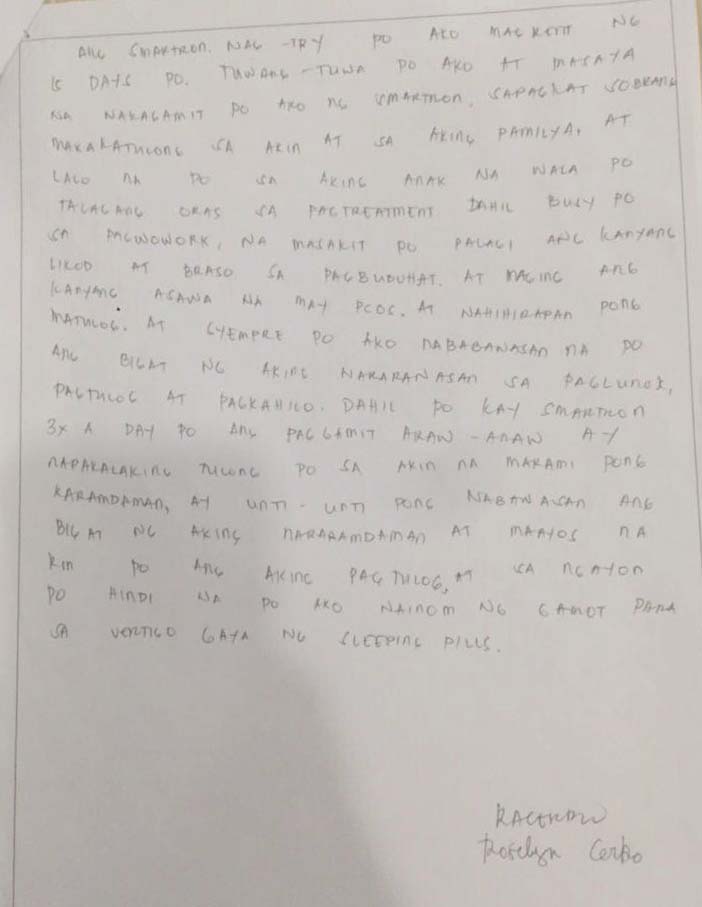 ANG SMARTRON. NAG-TRY PO AKO MAG RENT NG
15 DAYS PO. TUWANG-TUWA PO AKO AT MASAYA
NA NAKAGAMIT PO AKO NG SMARTRON, SAPAGKAT SOBRANG
MAKAKATULONG SA AKIN AT SA AKING PAMILYA, AT
LALO NA PO SA AKING ANAK NA WALA PO
TALAGANG ORAS SA PAGTREATMENT DAHIL BUSY PO
SA PAGWOWORK, NA MASAKIT PO PALAGI ANG KANYANG
LIKOD AT BRASO SA PAGBUBUHAT. AT MAGING ANG
KANYANG ASAWA NA MAY PCOS. AT NAHIHIRAPAN PONG
MATULOG. AT SYEMPRE PO AKO NABABAWASAN NA PO
ANG BIGAT NG AKING NARARANASAN SA PAGLUNOK,
PAGTULOG AT PAGKAHILO. DAHIL PO KAY SMARTRON
3X A DAY PO ANG PAGGAMIT ARAW-ARAW AY
NAPAKALAKING TULONG PO SA AKIN NA MARAMI PONG
KARAMDAMAN, AY UNTI-UNTI PONG NABAWASAN ANG
BIGAT NG AKING NARARAMDAMAN AT MAAYOS NA
RIN PO ANG AKING PAGTULOG, AT SA NGAYON
PO HINDI NA PO AKO NAINOM NG GAMOT PARA
SA VERTIGO GAYA NG SLEEPING PILLS.
Roselyn